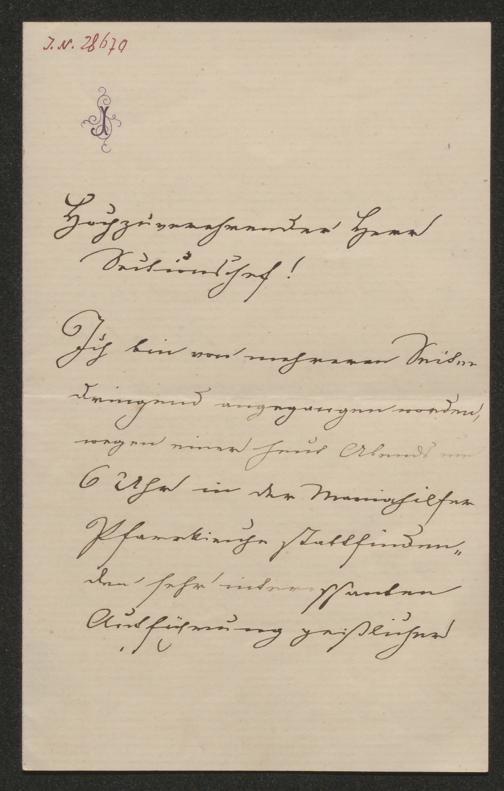 I. N. 28670
Hochzuverehrender Herr
Sectionschef!
Ich bin von mehreren Seiten
dringend angegangen worden,
wegen einer heut Abends um
6 Uhr in der Mariahilfer
Pfarrkirche stattfinden„
den sehr interessanten
Aufführung geistlicher